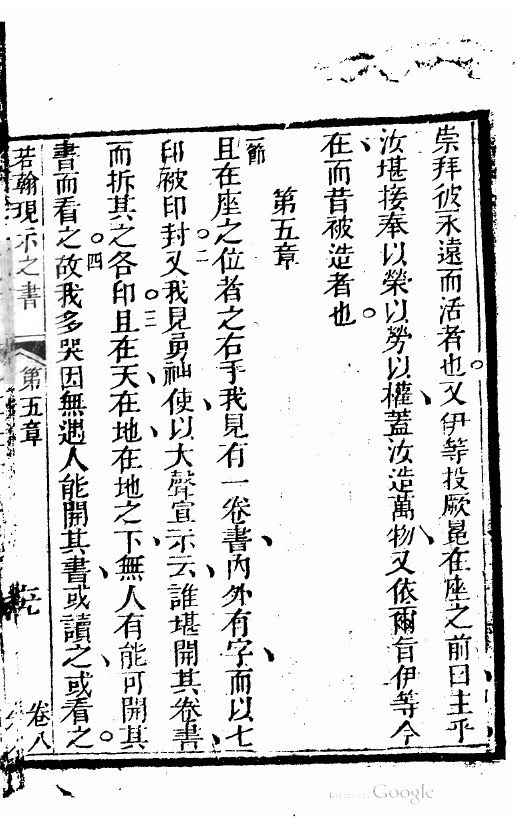 崇拜彼永遠而活者也。又伊等投厥冕在座之前曰、主乎、
汝堪接奉以榮以勞以權、蓋汝造萬物、又依爾旨伊等今
在、而昔被造者也。
第五章
一節
且在座之位者之右手我見有一卷書、內外有字、而以七
印被印封。二又我見勇神使、以大聲宣示云、誰堪開其卷書、
而拆其之各印。三且在天、在地、在地之下、無人有能可開其
書而看之。四故我多哭、因無遇人能開其書、或讀之、或看之。
若翰現示之書
第五章
卷八
Digitized by Google